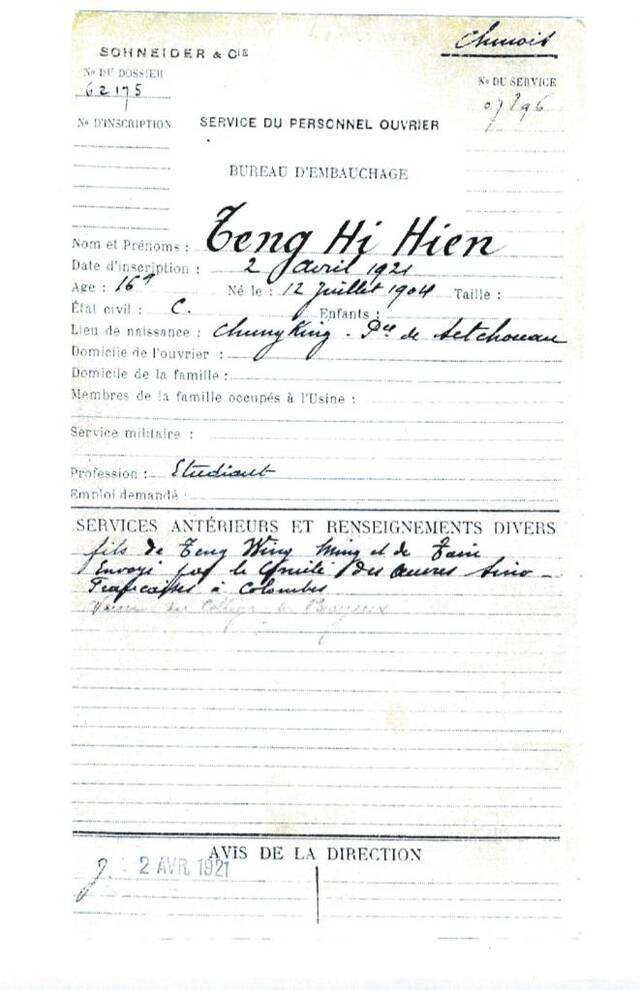 Chinois
SCHNEIDER & CIE
No DU DOSSIER
62175
No DU SERVICE
07396
No D'INSCRIPTION
SERVICE DU PERSONNEL OUVRIER
BUREAU D'EMBAUCHAGE
Nom et Prénoms : Teng Hi Hien
Date d'inscription : 2 avril 1921
Age : 16a Né le : 12 juillet 1904 Taille :
État civil : C. Enfants :
Lieu de naissance : Chungking - Pce de Setchouan
Domicile de l'ouvrier :
Domicile de la famille :
Membres de la famille occupés à l'Usine :
Service militaire :
Profession : Etudiant
Emploi demandé :
SERVICES ANTÉRIEURS ET RENSEIGNEMENTS DIVERS
fils de Teng Wing Ming et de Tain
Envoyé par le Comité des Oeuvres Sino-
Françaises à Colombes
Collège de Bayeux
AVIS DE LA DIRECTION
2 AVR. 1921